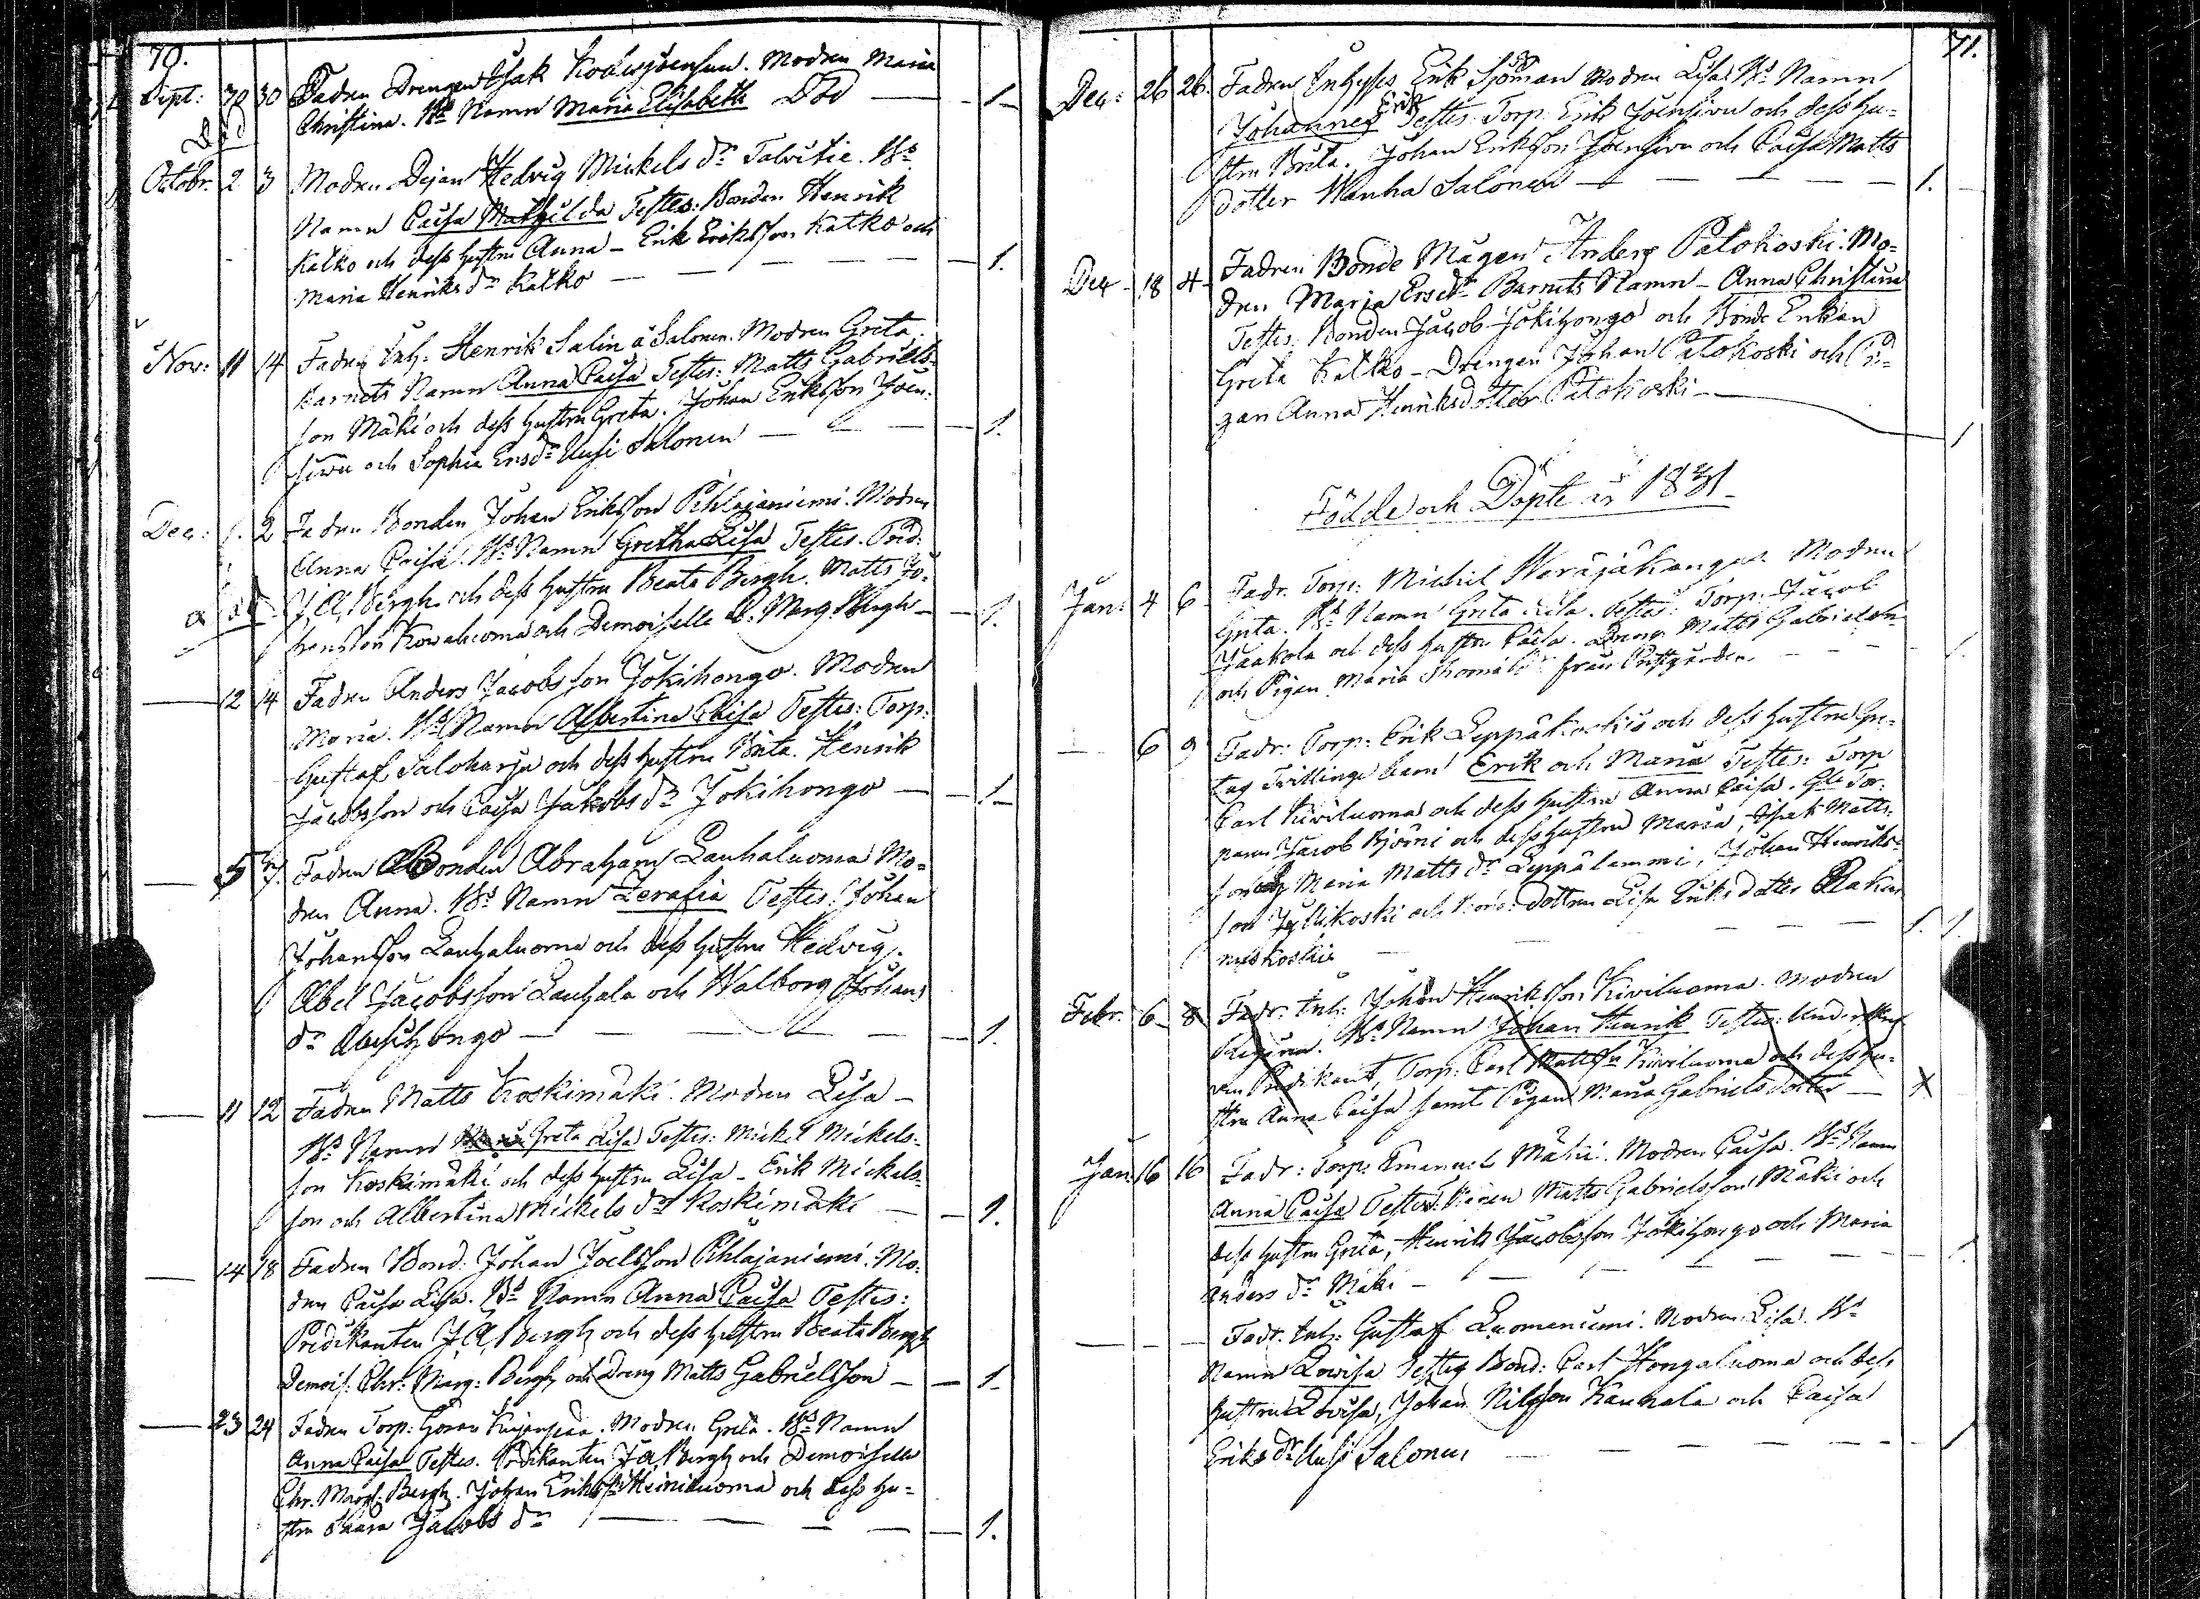 70.
Sept: 30 30 Fadren Drengen Isak Modren Maria
Christina. Bs Namn Maria Elisabeth Död 1
Död
Octobr. 2 3 Modren Pigan Hedvig Mickels dr Talvitie. Bs
Namn Caisa Mathilda Testes: Bonden Henrik
Katko och dess hustru Anna - Erik Eriksson Katko och
Maria Henriks dr Katko 1.
Nov: 11 14 Fadren Inh: Henrik Salin å Salonen. Modren Greta.
Barnets Namn Anna Caisa Testes: Matts Gabriels-
son Mäki och dess hustru Greta. Johan Eriksson Joen-
suu och Sophia Ersdr Uusi Salonen 1.
Dec: 1. 2 Fadren Bonden Johan Eriksson Pihlajaniemi. Modren
Anna Caisa. Bs Namn Gretha Lisa Testes. Pred:
J. A. Bergh och dess hustru Beata Bergh. Matts Jo-
hansson Kowaluoma och Demoiselle C. Marg. Bergh 1.
12 14 Fadren Anders Jacobsson Jokihongo. Modren
Maria. Bs Namn Albertina Caisa Testes: Torp:
Gustaf Saloharju och dess hustru Brita. Henrik
Jacobsson och Caisa Jakobs dr Jokihongo 1
5 7. Fadren Bonden Abraham Lauhaluoma Mo-
dren Anna. Bs Namn Zerafia Testes: Johan
Johansson Lauhaluoma och dess hustru Hedvig.
Abel Jacobsson Lauhala och Walborg Johans
dr 1.
11 12 Fadren Matts Koskimäki. Modren Lisa -
Bs Namn Greta Lisa Testes: Mickel Mickels-
son Koskimäki och dess hustru Lisa - Erik Mickels-
son och Albertina Mickels dr Koskimäki 1.
14 18 Fadren Bond: Johan Joelsson Pihlajaniemi. Mo-
dren Caisa Lisa. Bs Namn Anna Caisa Testes:
Predikanten J. A. Bergh och dess hustru Beata Bergh
Demois: Chr: Marg: Bergh och Dreng Matts Gabrielsson 1
23 24 Fadren Torp: Göran Modren Greta. Bs Namn
Anna Caisa Testes. Predikanten J A Bergh och Demoiselle
Chr. Marg. Bergh. Johan Eriksson Heiniluoma och dess hu-
stru Jacobs dr 1.
71.
Dec: 26 26. Fadren Inhyses Erik Sjöman Modren Lisa Bs Namn
Johannes Erik Testes: Torp. Erik Joensuu och dess hu-
stru Brita. Johan Eriksson Joensuu och Caisa Matts
dotter Wanha Salonen 1.
Dec 18 4 Fadren Bonde Mågen Anders Patokoski. Mo-
dren Maria Ersdr Barnets Namn - Anna Christina
Testes: Bonden Jacob Jokihongo och Bonde Enkan
Greta Katko - Drengen Johan Patokoski och Pi-
gan Anna Henriksdotter Patokoski 1
Födde och Döpte år 1831
Jan: 4 6 Fadr. Torp: Michel Modren
Greta. Bs Namn Greta Lisa. Testes: Torp: Jacob
Jaakola och dess hustru Caisa. Dreng Matts Gabrielsson
och Pigan Maria från Prestgården
6 9 Fadr: Torp: Erik Leppäkoski och dess hustru
Tvillinge barn Erik och Maria Testes: Torp
Carl Kiviluoma och dess hustru Anna Caisa. Gla Tor-
paren Jacob Björni och dess hustru Maria, Isak Matts-
son och Maria Matts dr Leppälammi, Johan Henriks-
son Jyllikoski och dottren Lisa Eriksdotter
1. 1.
Febr. 6 8 Fadr: Inh: Johan Henriksson Kiviluoma. Modren
Regina. Bs Namn Johan Henrik Testes:
Predikant, Torp: Carl Mattsson Kiviluoma och dess hu-
stru Anna Caisa samt Pigan Maria Gabrielsdotter X
Jan: 16 16 Fadr: Torp: Emanuel Mäki. Modren Caisa. Bs Namn
Anna Caisa Testes: Matts Gabrielsson Mäki och
dess hustru Greta, Henrik Jacobsson Jokihongo och Maria
Anders dr Mäki
Fadr. Inh: Gustaf Luomaniemi. Modren Lisa. Bs
Namn Lowisa Testes Bond: Carl Hongaluoma och dess
hustru Lovisa, Johan Nilsson Kauhala och Caisa
Eriks dr Uusi Salonen